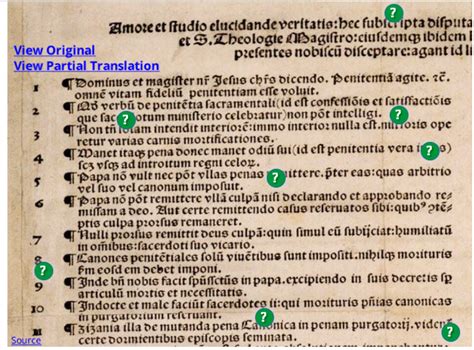 Amore et studio elucidande veritatis: hec subscripta disputa
et S. Theologie Magistro: eiusdemq ibidem l
presentes nobiscū disceptare: agant id li
View Original
View Partial Translation
1 ¶ Dominus et magister nr̄ Jesus chr̄s dicendo. Penitentiā agite. ꝛc̄.
omnē vitam fideliū penitentiam esse voluit.
2 ¶ Qd verbū de penitētia sacramentali (id est confessiōis et satisfactiōis
que sac otum ministerio celebratur) non pōt intelligi.
3 ¶ Non tn̄ solam intendit interiorē: immo interior nulla est. nisi foris ope
retur varias carnis mortificationes.
4 ¶ Manet itaqꝫ pena donec manet odiū sui (id est penitentia vera s)
scꝫ vsqꝫ ad introitum regni celoꝝ.
5 ¶ Papa nō vult nec pōt vllas penas ittere. p̄ter eas: quas arbitrio
vel suo vel canonum imposuit.
6 ¶ Papa nō pōt remittere vllā culpā nisi declarando et approbando re-
missam a deo. Aut certe remittendo casus reservatos sibi: quibꝰ ꝯtē-
ptis culpa prorsus remaneret.
7 ¶ Nulli prorsus remittit deus culpā: quin simul eū subijciat: humiliatū
in omnibus: sacerdoti suo vicario.
8 ¶ Canones penitētiales solū viuētibus sunt impositi. nihilqꝫ morituris
fm eosdem debet imponi.
9 ¶ Inde bn̄ nobis facit spūssctūs in papa. excipiendo in suis decretis sp
articulū mortis et necessitatis.
10 ¶ Indocte et male faciūt sacerdotes ij: qui morituris pn̄ias canonicas
in purgatorium reseruant.
11 ¶ Zizania illa de mutanda pena Canonica in penam purgatorij. viden
certe dormientibus episcopis seminata.
Source